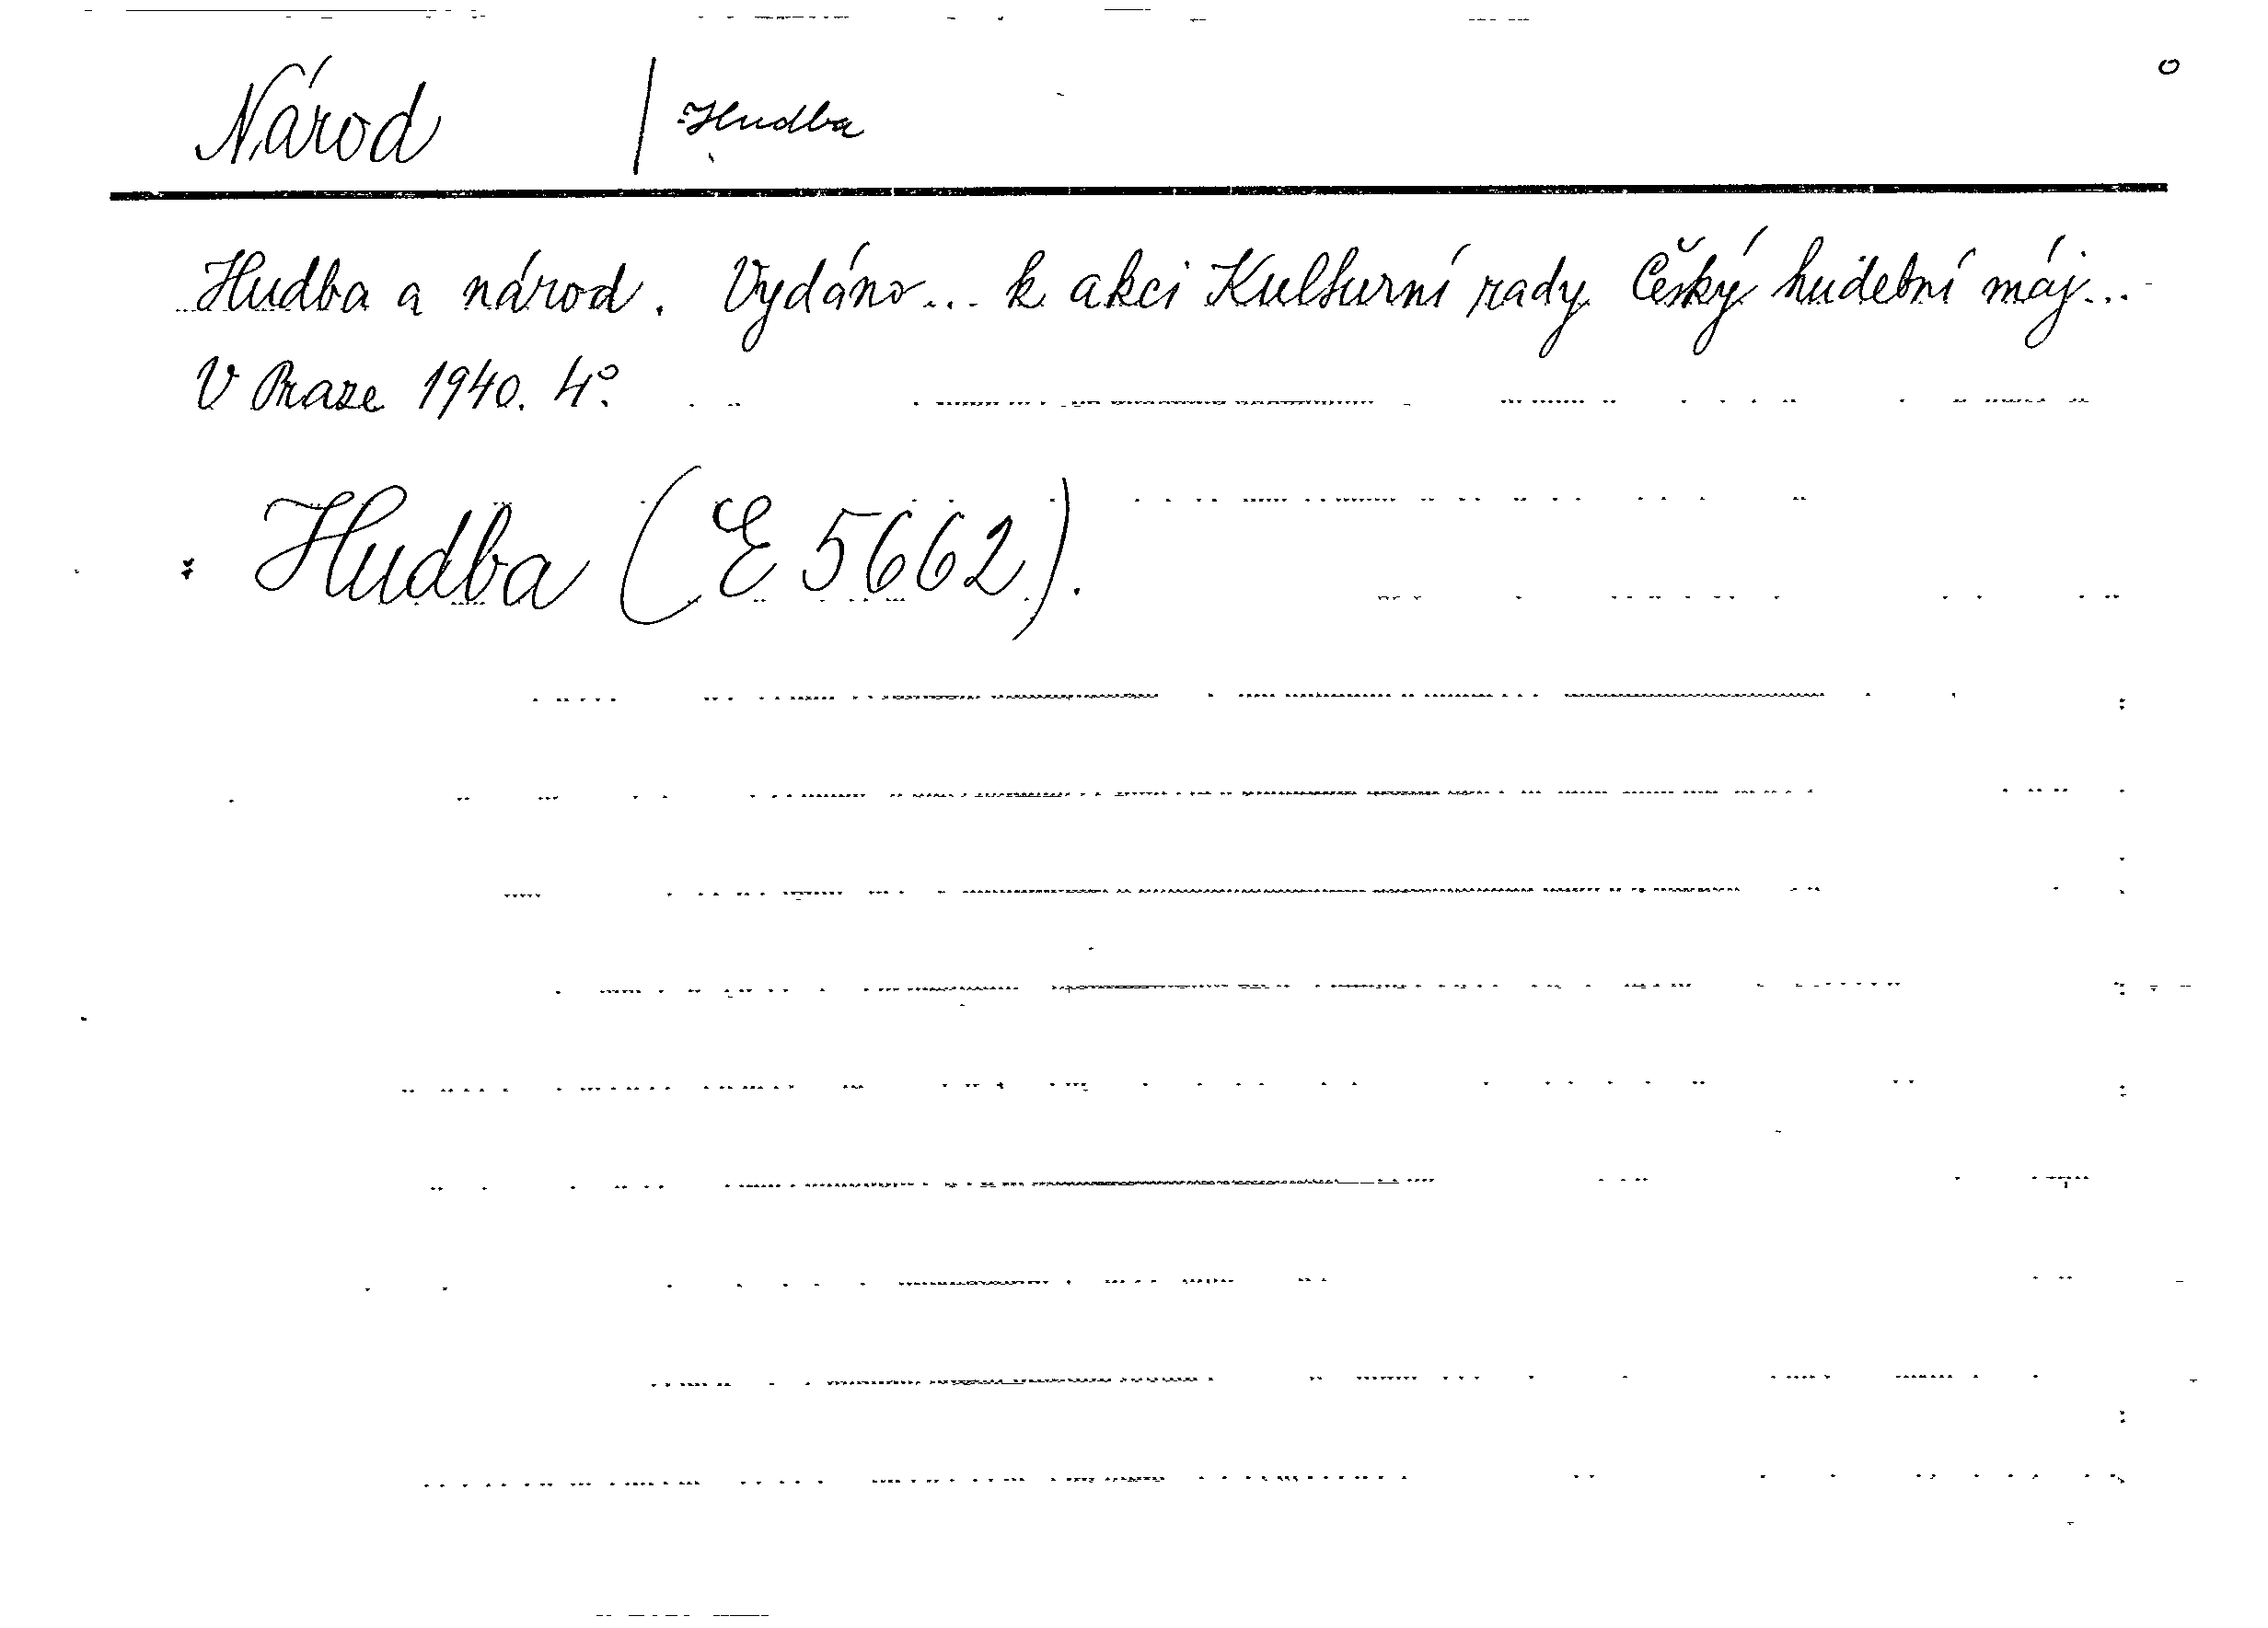 Národ / Hudba
Hudba a národ. Vydáno... k akci Kulturní rady Český hudební máj...
V Praze 1940. 4°.
: Hudba (E 5662).